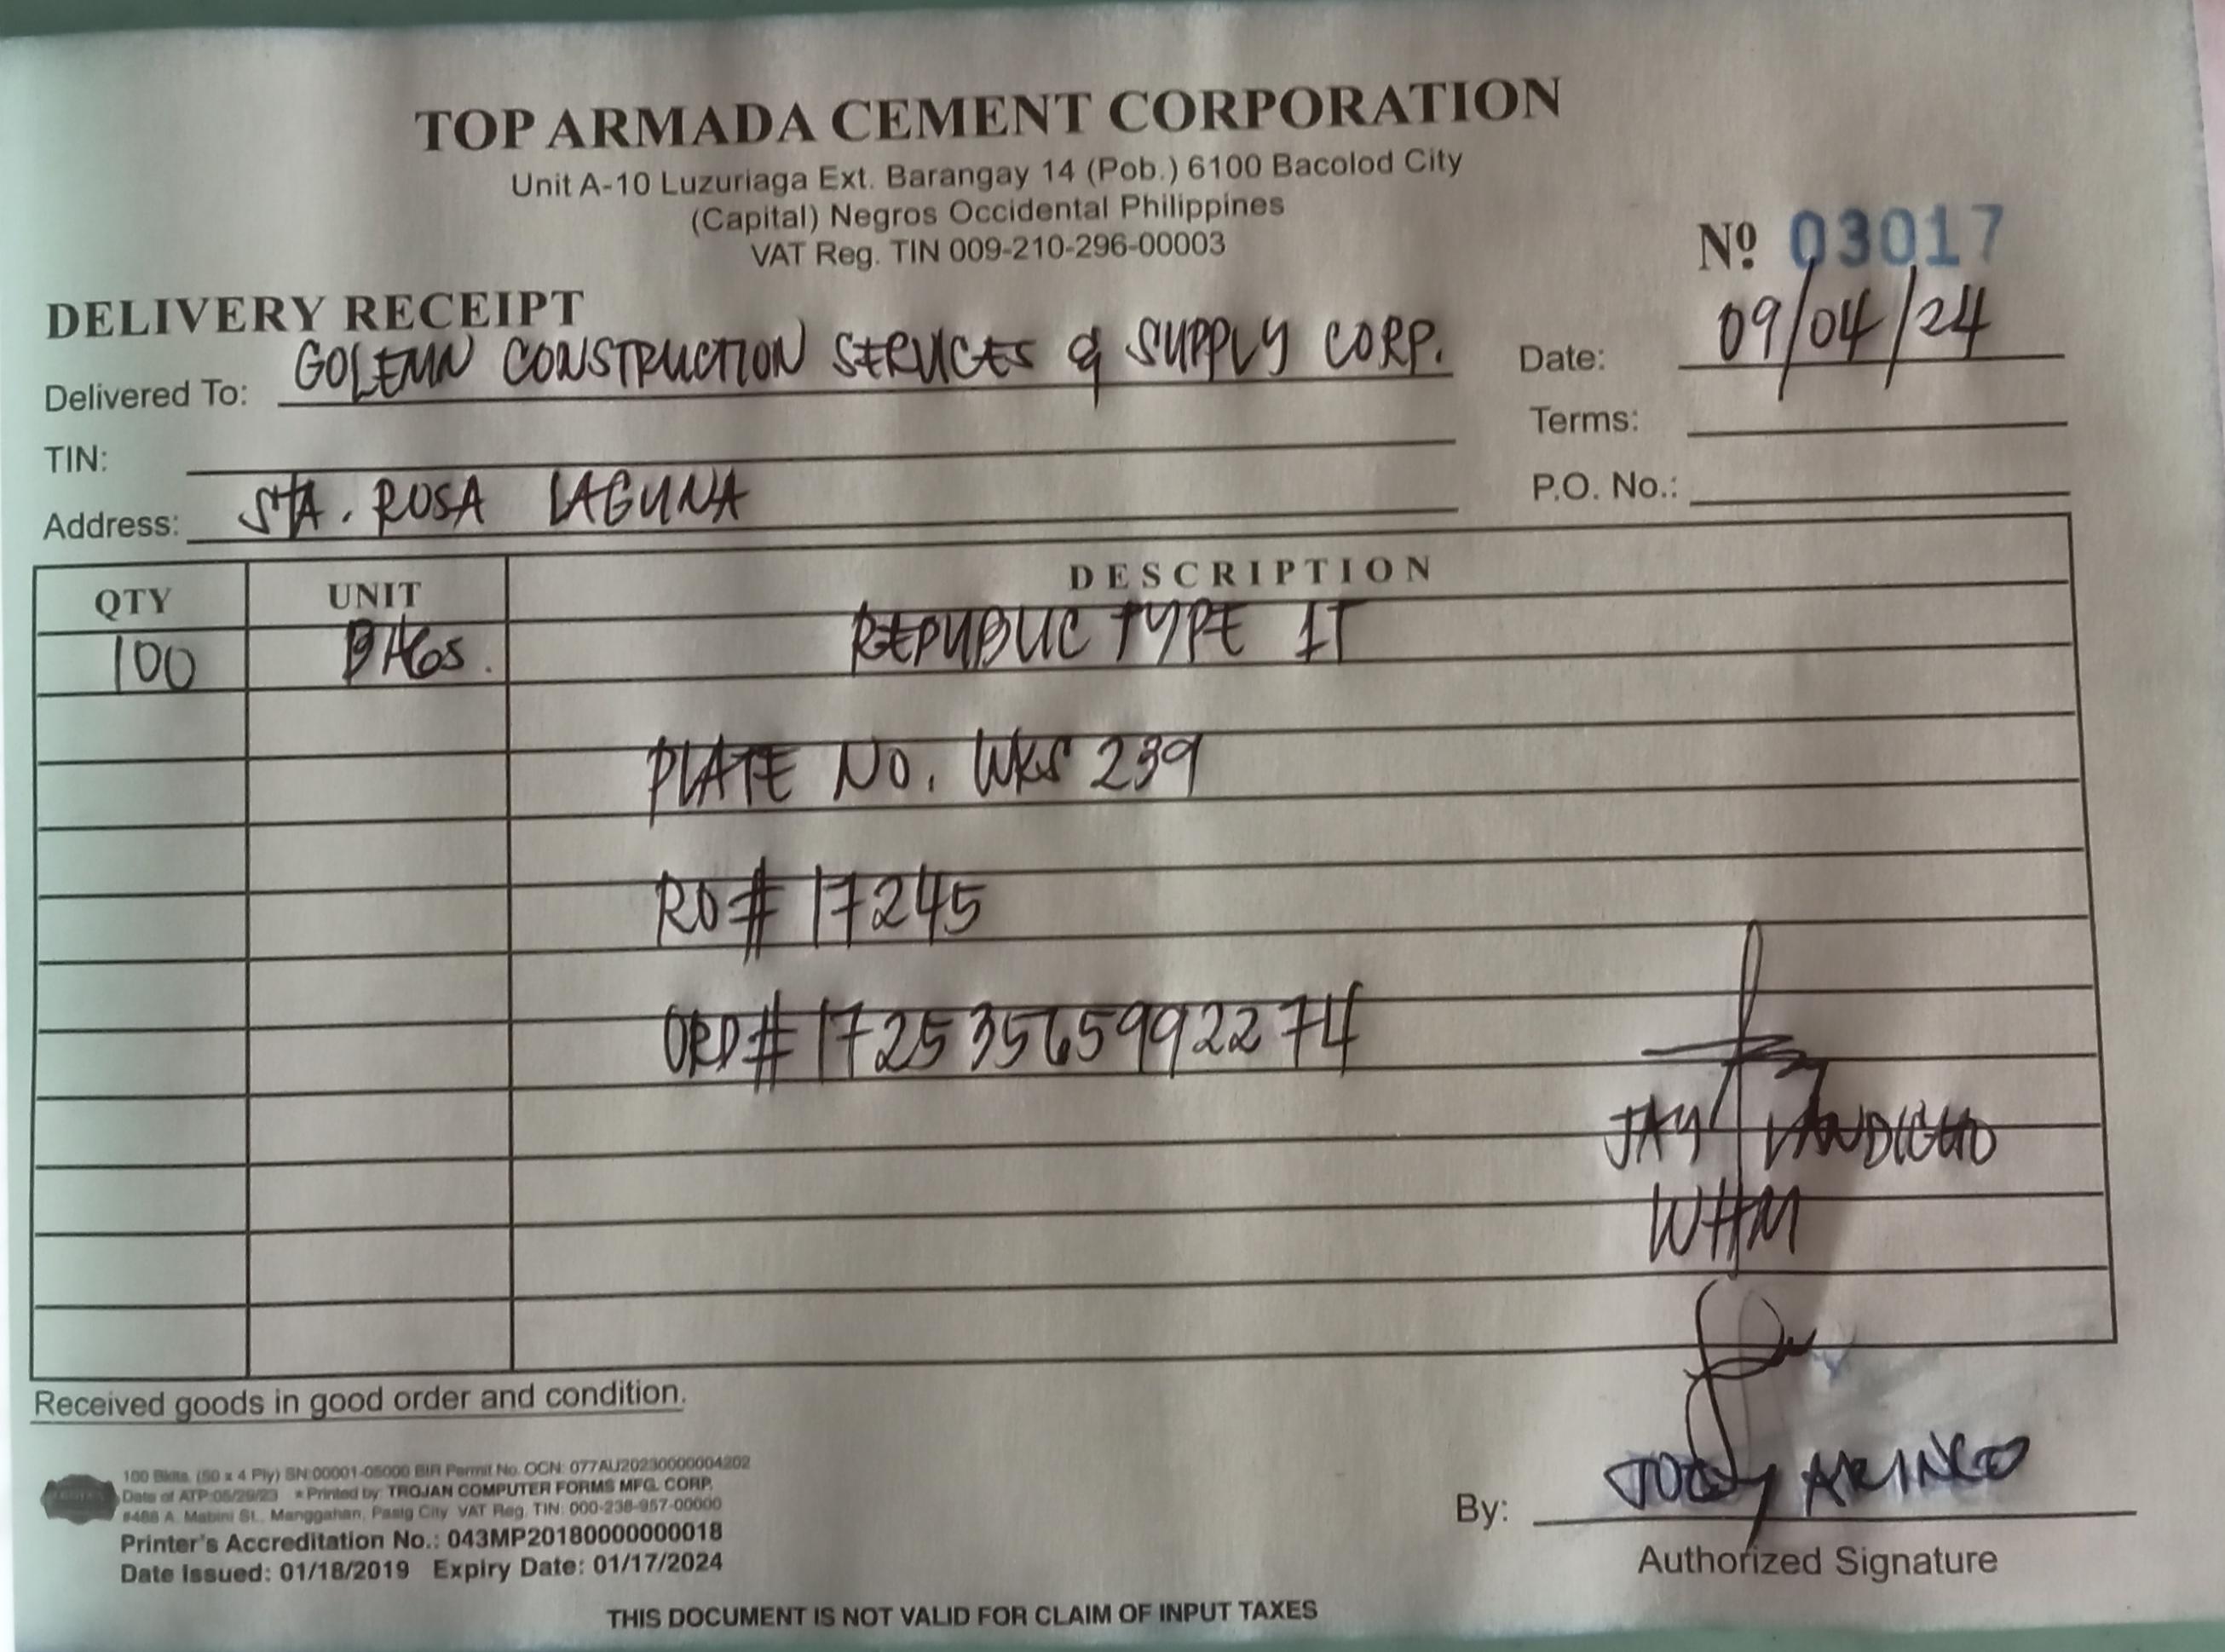 TOP ARMADA CEMENT CORPORATION
Unit A-10 Luzuriaga Ext. Barangay 14 (Pob.) 6100 Bacolod City
(Capital) Negros Occidental Philippines
VAT Reg. TIN 009-210-296-00003
Nº 03017
DELIVERY RECEIPT
Delivered To: GOLEMN CONSTRUCTION SERVICES & SUPPLY CORP. Date: 09/04/24
TIN: Terms:
Address: STA. ROSA LAGUNA P.O. No.:
QTY UNIT DESCRIPTION
100 BAGS. REPUBLIC TYPE 1T
PLATE NO. WKS 239
RO# 17245
ORD# 17253565992274
JAY
WHM
Received goods in good order and condition.
100 Bklts. (50 x 4 Ply) SN:00001-05000 BIR Permit No. OCN: 077AU20230000004202
Date of ATP:05/29/23 * Printed by: TROJAN COMPUTER FORMS MFG. CORP.
#488 A. Mabini St., Manggahan, Pasig City VAT Reg. TIN: 000-238-957-00000
Printer's Accreditation No.: 043MP20180000000018
Date Issued: 01/18/2019 Expiry Date: 01/17/2024
By: ARINGO
Authorized Signature
THIS DOCUMENT IS NOT VALID FOR CLAIM OF INPUT TAXES